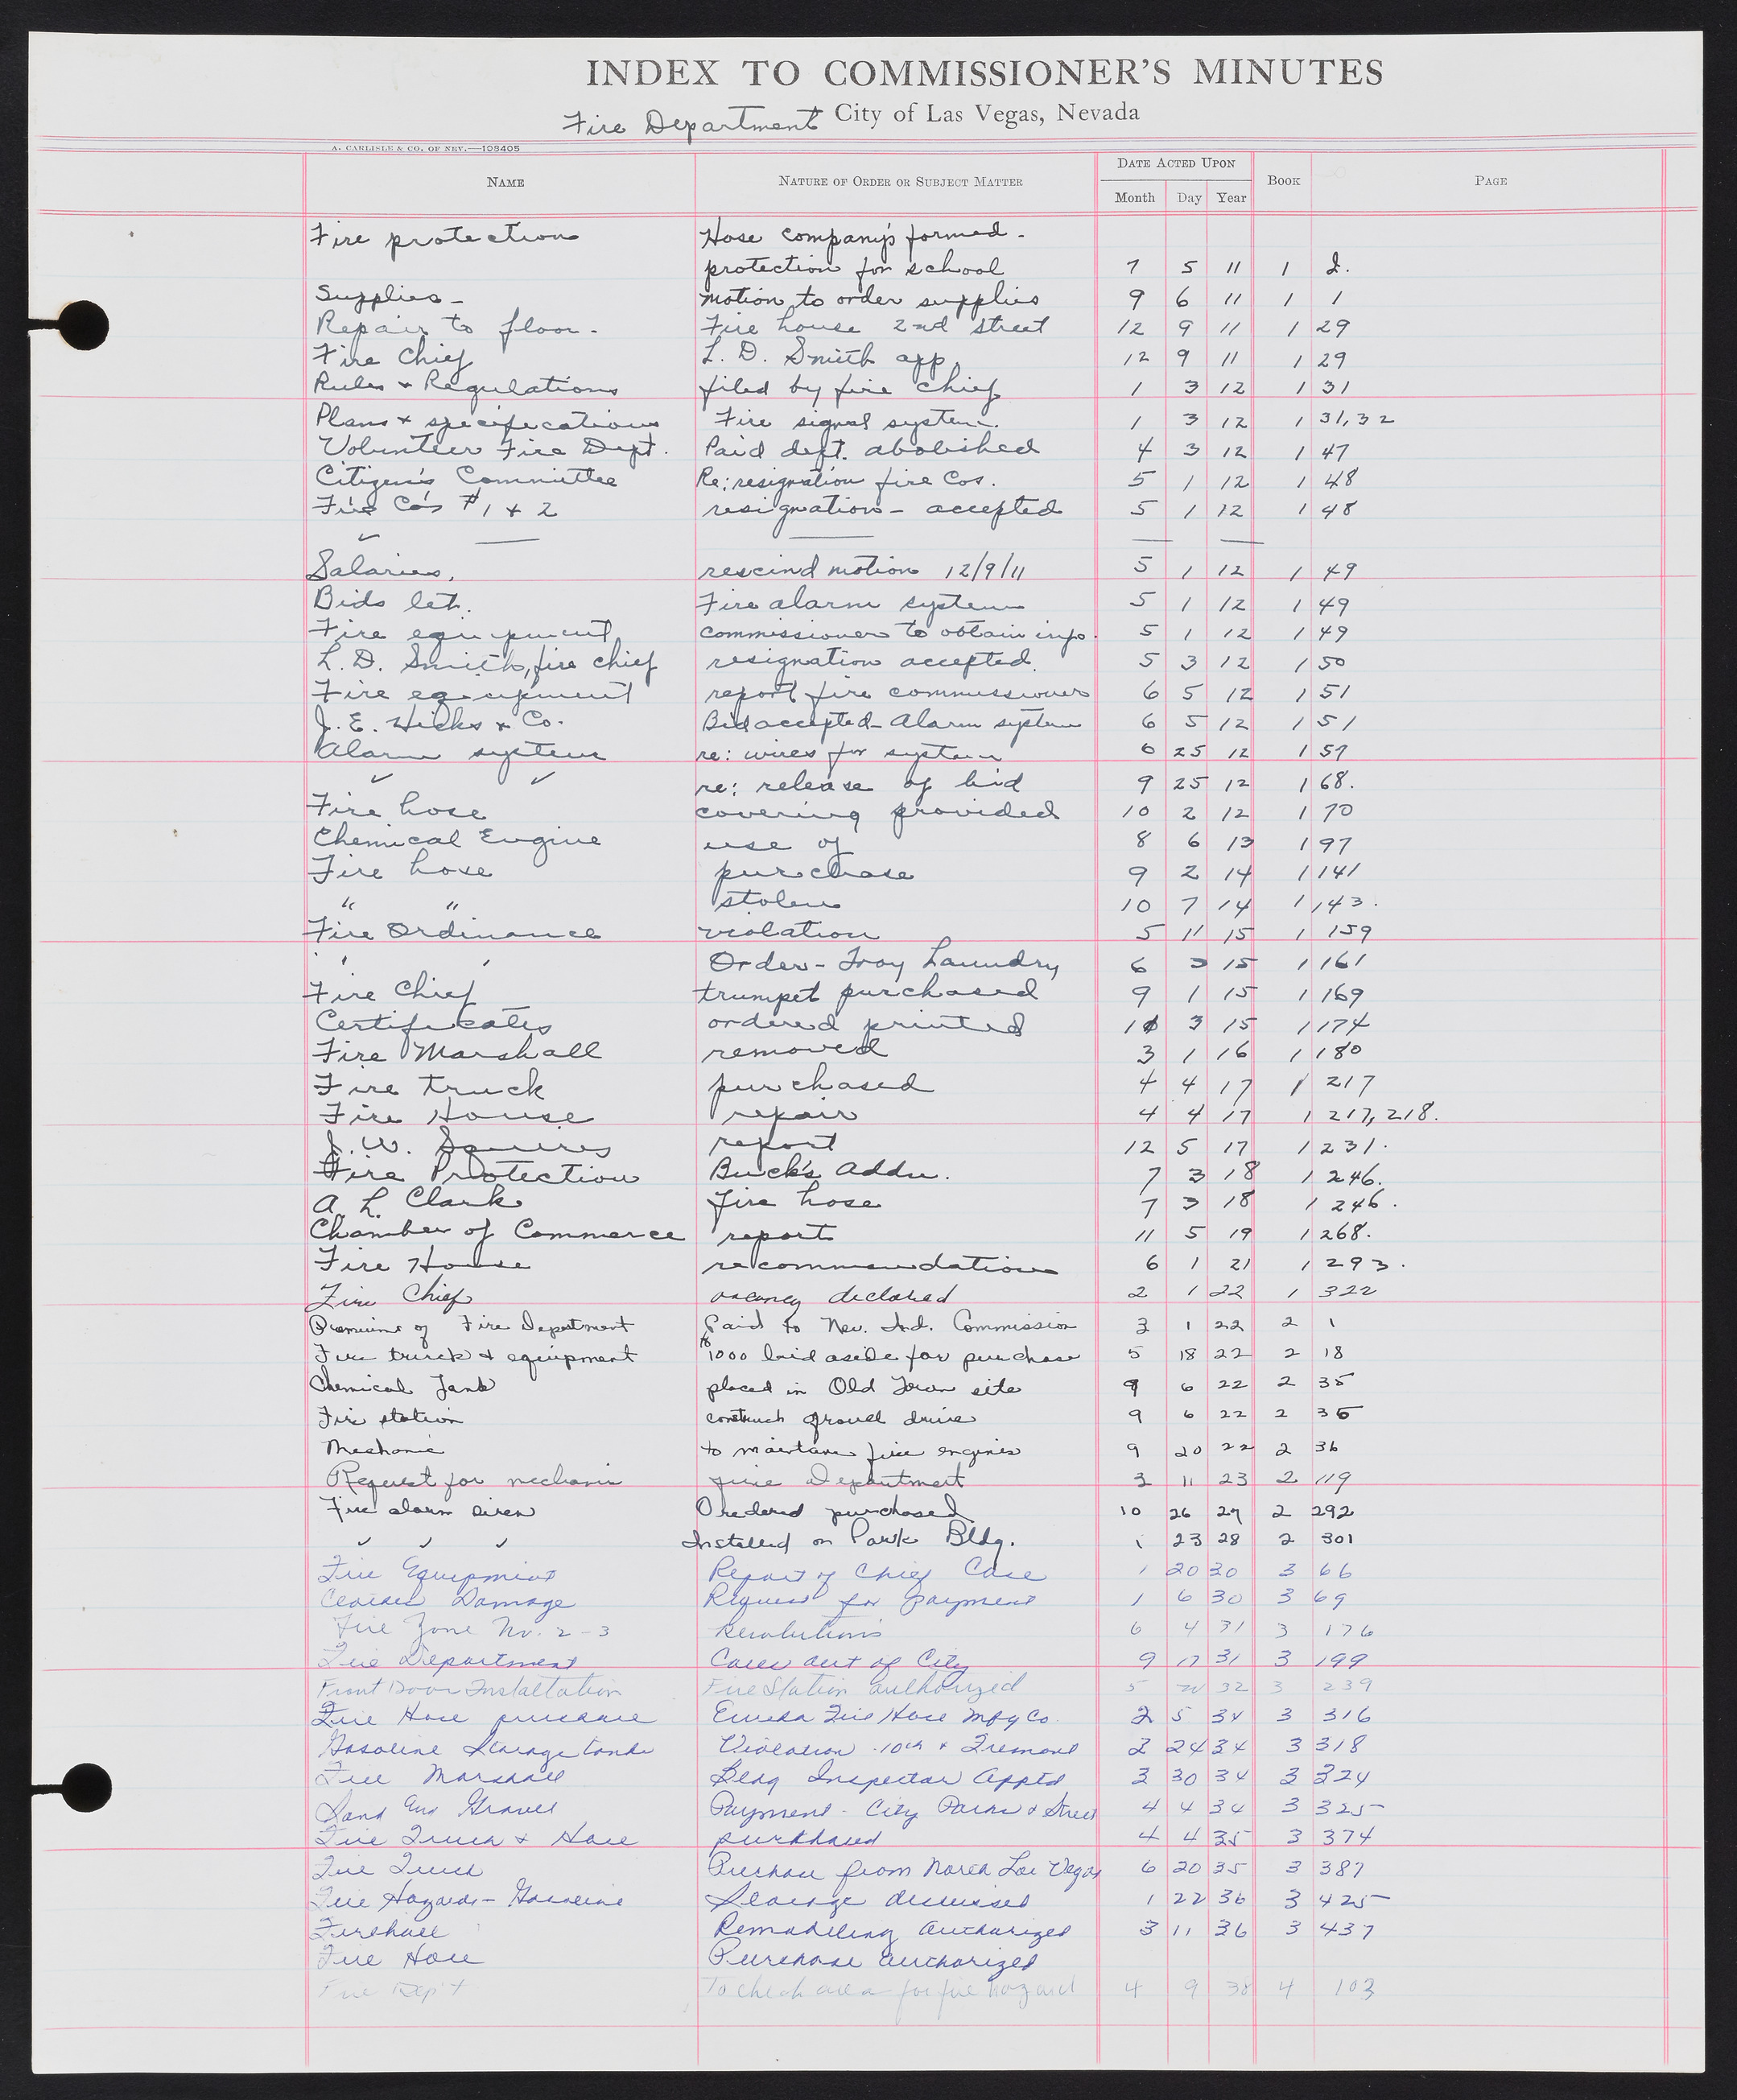 INDEX TO COMMISSIONER'S MINUTES
Fire Department City of Las Vegas, Nevada
A. CARLISLE & CO. OF NEV.—108405
NAME NATURE OF ORDER OR SUBJECT MATTER DATE ACTED UPON BOOK PAGE
Month Day Year
Fire protection Hose company's formed -
protection for school 7 5 11 1 2.
Supplies - motion to order supplies 9 6 11 1 1
Repair to floor - Fire house 2nd street 12 9 11 1 29
Fire Chief L. D. Smith app. 12 9 11 1 29
Rules + Regulations filed by fire chief 1 3 12 1 31
Plans + specifications Fire signal system. 1 3 12 1 31,32
Volunteer Fire Dept. Paid dept. abolished 4 3 12 1 47
Citizen's Committee Re: resignation fire Cos. 5 1 12 1 48
Fire Co's #1 + 2 resignation - accepted 5 1 12 1 48
Salaries, rescind motion 12/9/11 5 1 12 1 49
Bids let. Fire alarm system 5 1 12 1 49
Fire equipment commissioner to obtain info. 5 1 12 1 49
L. D. Smith, fire chief resignation accepted. 5 3 12 1 50
Fire equipment report fire commissioner 6 5 12 1 51
J. E. Hicks & Co. Bid accepted - Alarm system 6 5 12 1 51
Alarm system re: wires for system 6 25 12 1 57
✓ ✓ re: release of bid 9 25 12 1 68.
Fire hose covering provided 10 2 12 1 70
Chemical Engine use of 8 6 13 1 97
Fire hose purchase 9 2 14 1 141
" " stolen 10 7 14 1 143.
Fire Ordinance violation 5 11 15 1 159
' ' Order - Troy Laundry 6 3 15 1 161
Fire Chief trumpet purchased 9 1 15 1 169
Certificates ordered printed 10 3 15 1 174
Fire Marshall removed 3 1 16 1 180
Fire truck purchased 4 4 17 1 217
Fire House repair 4 4 17 1 217, 218.
J. W. Squires report 12 5 17 1 231.
Fire Protection Buck's Addn. 7 3 18 1 246.
A. L. Clark fire hose 7 3 18 1 246.
Chamber of Commerce report 11 5 19 1 268.
Fire House recommendations 6 1 21 1 293.
Fire Chief vacancy declared 2 1 22 1 322
Premiums of Fire Department Paid to Nev. Ind. Commission 3 1 22 2 1
Fire truck & equipment $1000 laid aside for purchase 5 18 22 2 18
Chemical Tank placed in Old Town site 9 6 22 2 35
Fire station construct gravel drive 9 6 22 2 35
Mechanic to maintain fire engines 9 20 22 2 36
Request for mechanic Fire Department 3 11 23 2 119
Fire alarm siren Ordered purchased 10 26 27 2 292
✓ ✓ ✓ Installed on Park Bldg. 1 23 28 2 301
Fire Equipment Report of Chief Case 1 20 30 3 66
Damage Request for payment 1 6 30 3 69
Fire Zone No. 2-3 Resolutions 6 4 31 3 176
Fire Department Calls out of City 9 17 31 3 199
Front Door Installation Fire Station authorized 5 32 3 239
Fire Hose purchase Eureka Fire Hose Mfg Co. 2 5 34 3 316
Gasoline Storage tanks Violation - 10th & Fremont 2 24 34 3 318
Fire Marshall Bldg Inspector Apptd 3 30 34 3 324
Sand and Gravel Payment - City Parks & Street 4 4 34 3 325
Fire Truck & Hose purchased 4 4 35 3 374
Fire Truck Purchase from North Las Vegas 6 20 35 3 387
Fire Hazards - Gasoline Storage discussed 1 22 36 3 425
Firehall Remodeling authorized 3 11 36 3 437
Fire Hose Purchase authorized
Fire Dep't To check area for fire hazard 4 9 38 4 103